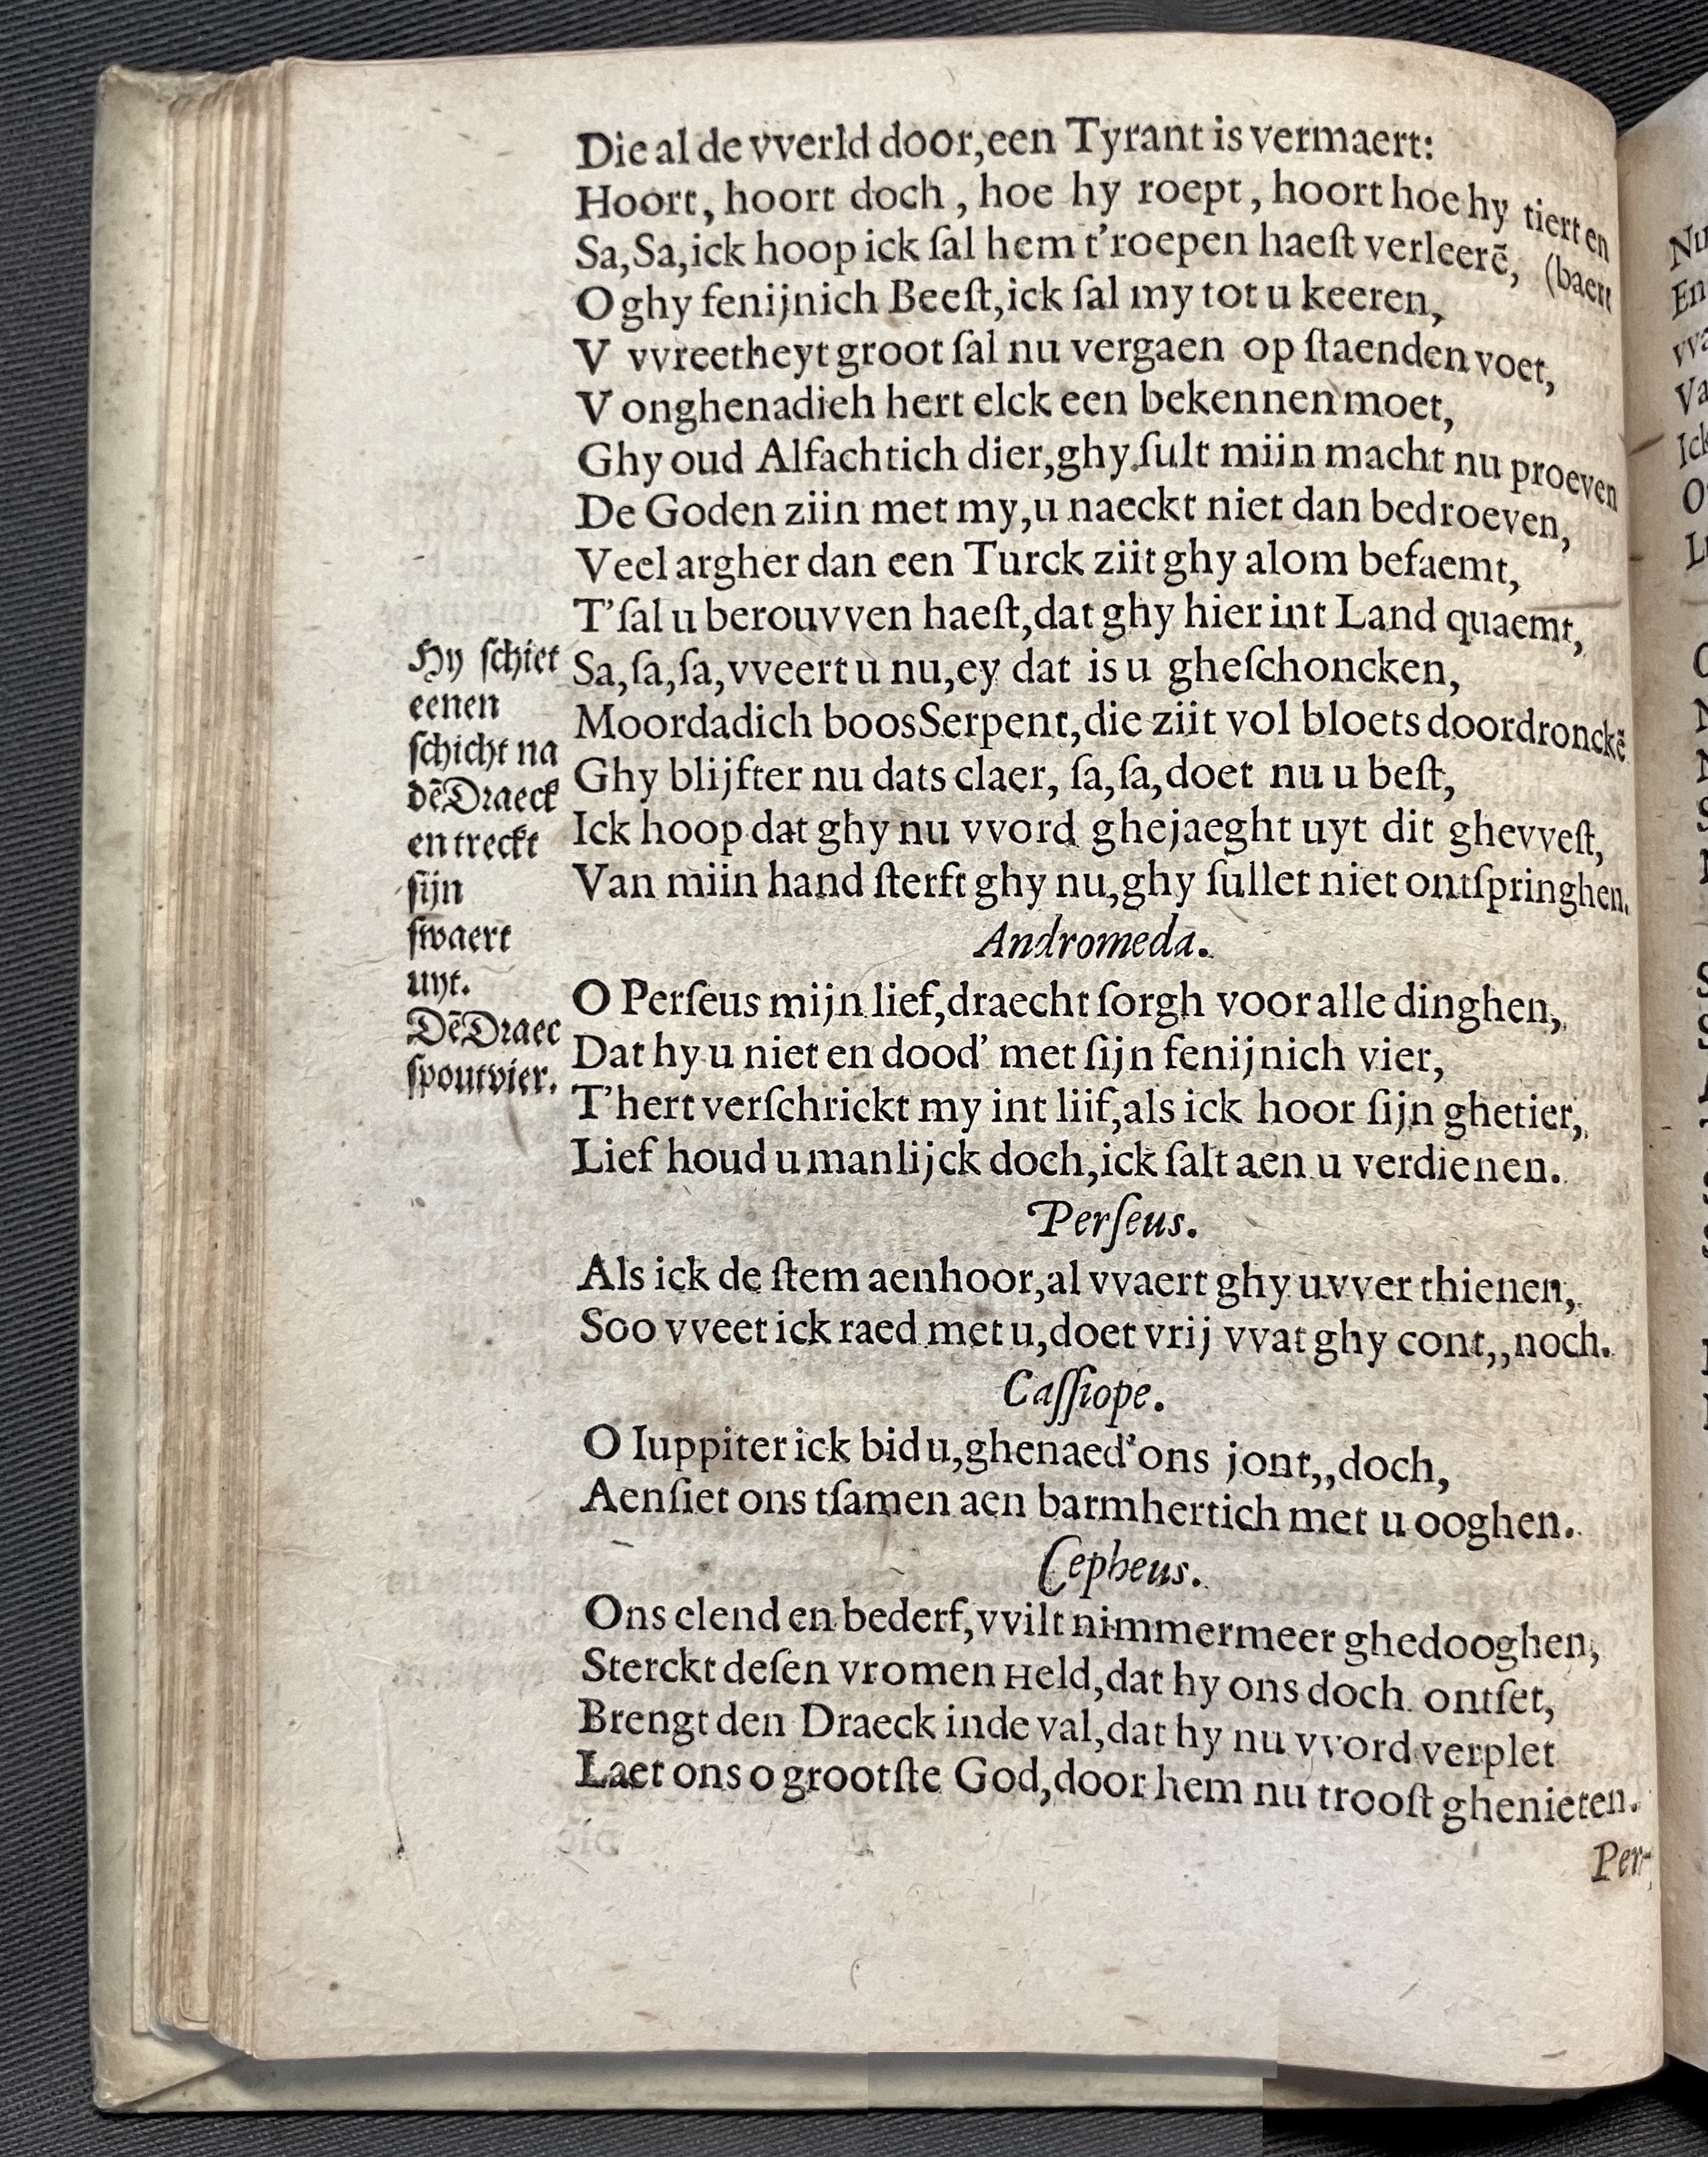 Die al de vverld door,een Tyrant is vermaert:
Hoort, hoort doch, hoe hy roept, hoort hoe hy tiert en
Sa,Sa,ick hoop ick ſal hem t'roepen haeſt verleerẽ, (baert
O ghy fenijnich Beeſt,ick ſal my tot u keeren,
V vvreetheyt groot ſal nu vergaen op ſtaenden voet,
V onghenadieh hert elck een bekennen moet,
Ghy oud Alfachtich dier,ghy ſult miin macht nu proeven
De Goden ziin met my,u naeckt niet dan bedroeven,
Veel argher dan een Turck ziit ghy alom befaemt,
T'ſal u berouvven haeſt,dat ghy hier int Land quaemt,
Sa,ſa,ſa,vveert u nu,ey dat is u gheſchoncken,
Moordadich boosSerpent,die ziit vol bloets doordronckẽ
Ghy blijfter nu dats claer, ſa,ſa,doet nu u beſt,
Ick hoop dat ghy nu vvord ghejaeght uyt dit ghevveſt,
Van miin hand ſterft ghy nu,ghy ſullet niet ontſpringhen.
Hy ſchiet
eenen
ſchicht na
dẽDraeck
en treckt
ſijn
ſwaert
uyt.
DẽDraec
ſpoutvier.
Andromeda.
O Perſeus mijn lief,draecht ſorgh voor alle dinghen,
Dat hy u niet en dood' met ſijn fenijnich vier,
T'hert verſchrickt my int liif,als ick hoor ſijn ghetier,
Lief houd u manlijck doch,ick ſalt aen u verdienen.
Perſeus.
Als ick de ſtem aenhoor,al vvaert ghy uvver thienen,
Soo vveet ick raed met u,doet vrij vvat ghy cont,,noch.
Caſſiope.
O Iuppiter ick bid u,ghenaed'ons jont,,doch,
Aenſiet ons tſamen aen barmhertich met u ooghen.
Cepheus.
Ons elend en bederf,vvilt nimmermeer ghedooghen,
Sterckt deſen vromen Held,dat hy ons doch ontſet,
Brengt den Draeck inde val,dat hy nu vvord verplet
Laet ons o grootſte God,door hem nu trooſt ghenieten.
Per-